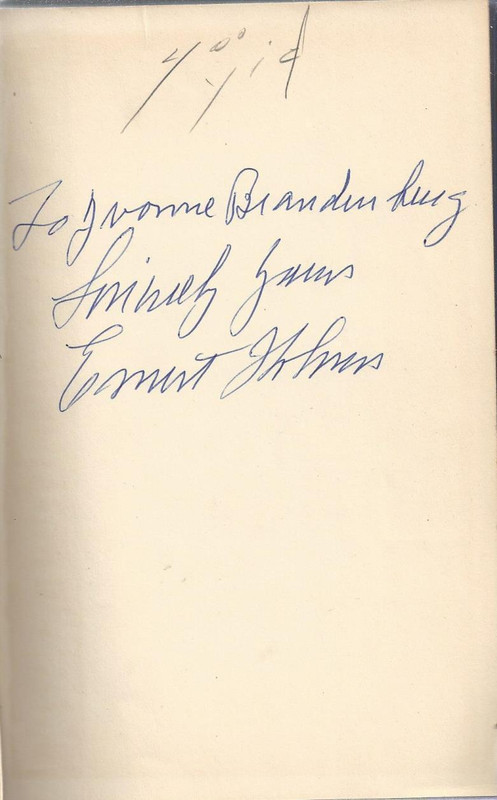 To Yvonne Brandenburg
Sincerely yours
Ernest Holmes